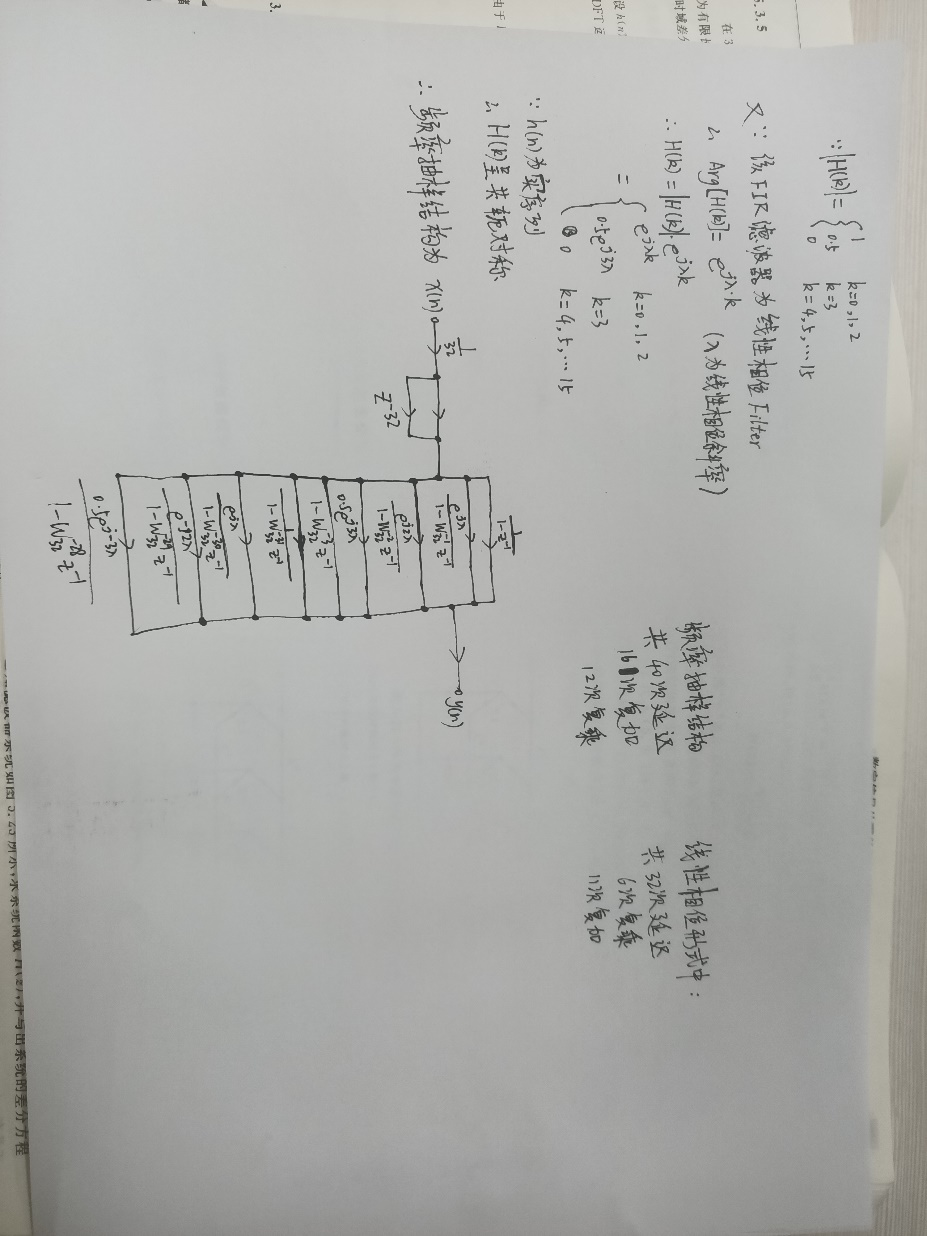 ∵ |H(k)| = { 1 k=0,1,2
0.5 k=3
0 k=4,5,…15
又∵ 该FIR滤波器为线性相位Filter
∴ Arg[H(k)] = e^{jλ·k} (λ为线性相位斜率)
∴ H(k) = |H(k)| e^{jλk}
= { e^{jλk} k=0,1,2
0.5e^{j3λ} k=3
0 k=4,5,…15
∵ h(n)为实序列
∴ H(k)呈共轭对称
∴ 频率抽样结构为 x(n)
1/32
z^{-32}
1/(1-z^{-1})
e^{jλ}/(1-W_{32}^{-1}z^{-1})
e^{j2λ}/(1-W_{32}^{-2}z^{-1})
0.5e^{j3λ}/(1-W_{32}^{-3}z^{-1})
e^{jλ}/(1-W_{32}^{-30}z^{-1})
e^{-j2λ}/(1-W_{32}^{-29}z^{-1})
0.5e^{j-3λ}/(1-W_{32}^{-28}z^{-1})
y(n)
频率抽样结构
共40次延迟
16次复加
12次复乘
线性相位形式中:
共32次延迟
6次复乘
11次复加
3.3.5
在3
为有限长
时域差分
设h(n)
DFT
由于
3.